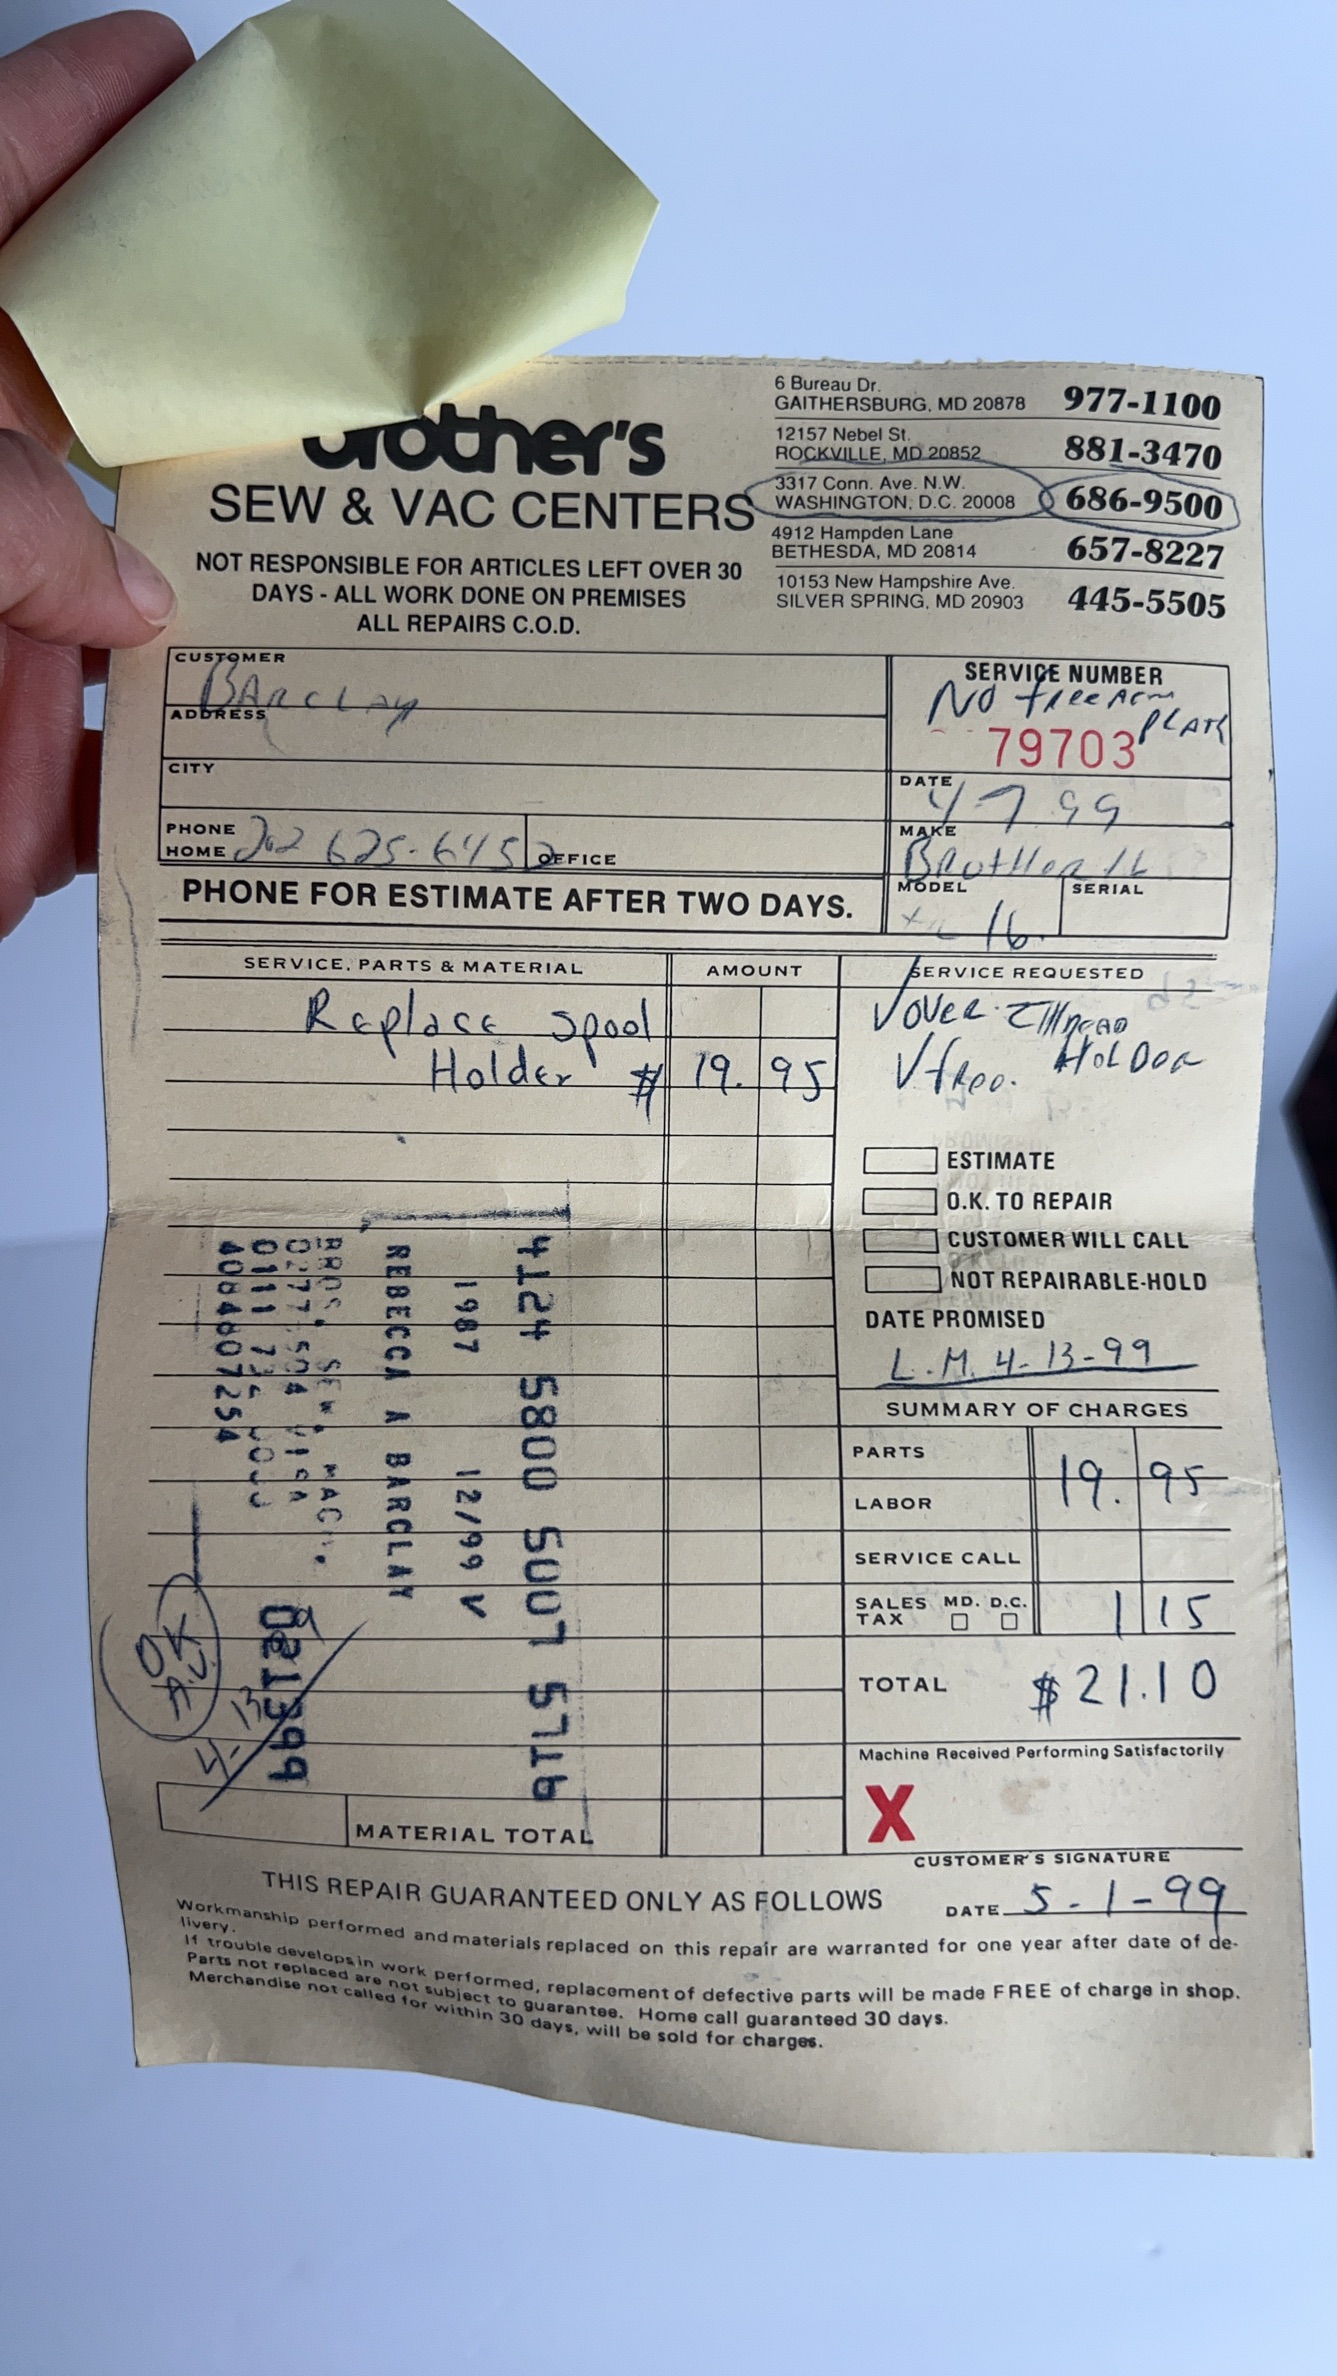 brother's
SEW & VAC CENTERS
NOT RESPONSIBLE FOR ARTICLES LEFT OVER 30
DAYS - ALL WORK DONE ON PREMISES
ALL REPAIRS C.O.D.
6 Bureau Dr.
GAITHERSBURG, MD 20878 977-1100
12157 Nebel St.
ROCKVILLE, MD 20852 881-3470
3317 Conn. Ave. N.W.
WASHINGTON, D.C. 20008 686-9500
4912 Hampden Lane
BETHESDA, MD 20814 657-8227
10153 New Hampshire Ave.
SILVER SPRING, MD 20903 445-5505
CUSTOMER
Barclay
ADDRESS
CITY
PHONE
HOME 202 625-6452 OFFICE
PHONE FOR ESTIMATE AFTER TWO DAYS.
SERVICE NUMBER
No free arm
plate
79703
DATE 4-7 99
MAKE
Brother
MODEL SERIAL
16
SERVICE, PARTS & MATERIAL AMOUNT
Replace Spool
Holder $ 19. 95
SERVICE REQUESTED
over. Thread
Holder
free.
ESTIMATE
O.K. TO REPAIR
CUSTOMER WILL CALL
NOT REPAIRABLE-HOLD
DATE PROMISED
L.M. 4-13-99
4124 5800
1987 12/99 V
REBECCA A BARCLAY
BROS. SEW
VISA
0111
4084607254
041399
OK
A.V.
4-13
MATERIAL TOTAL
SUMMARY OF CHARGES
PARTS 19. 95
LABOR
SERVICE CALL
SALES TAX MD. D.C. 1 15
TOTAL $21.10
Machine Received Performing Satisfactorily
X
CUSTOMER'S SIGNATURE
DATE 5-1-99
THIS REPAIR GUARANTEED ONLY AS FOLLOWS
Workmanship performed and materials replaced on this repair are warranted for one year after date of de-
livery.
If trouble develops in work performed, replacement of defective parts will be made FREE of charge in shop.
Parts not replaced are not subject to guarantee. Home call guaranteed 30 days.
Merchandise not called for within 30 days, will be sold for charges.